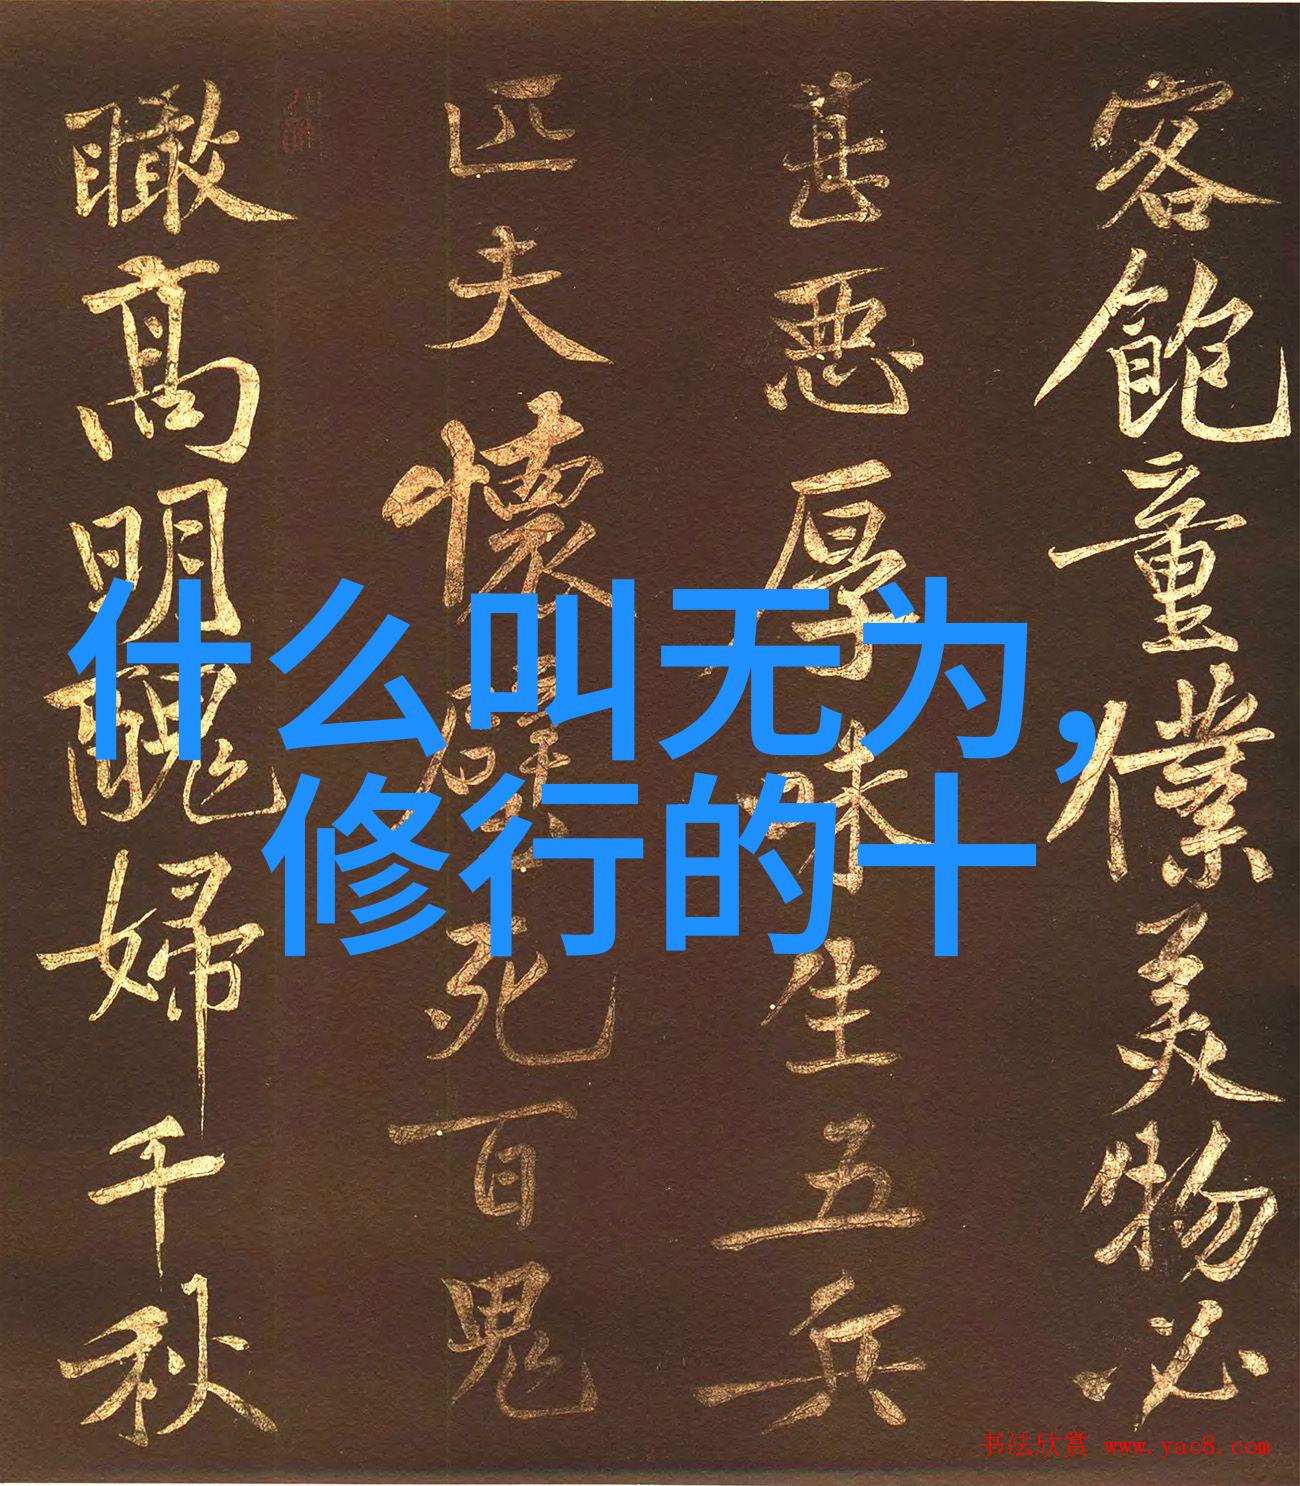 客飽童僕美物必
甚悪厚味生五兵
匹夫懷璧死百鬼
瞰髙明醜婦千秋
什么叫无为,
修行的十
书法欣赏 www.yac8.com